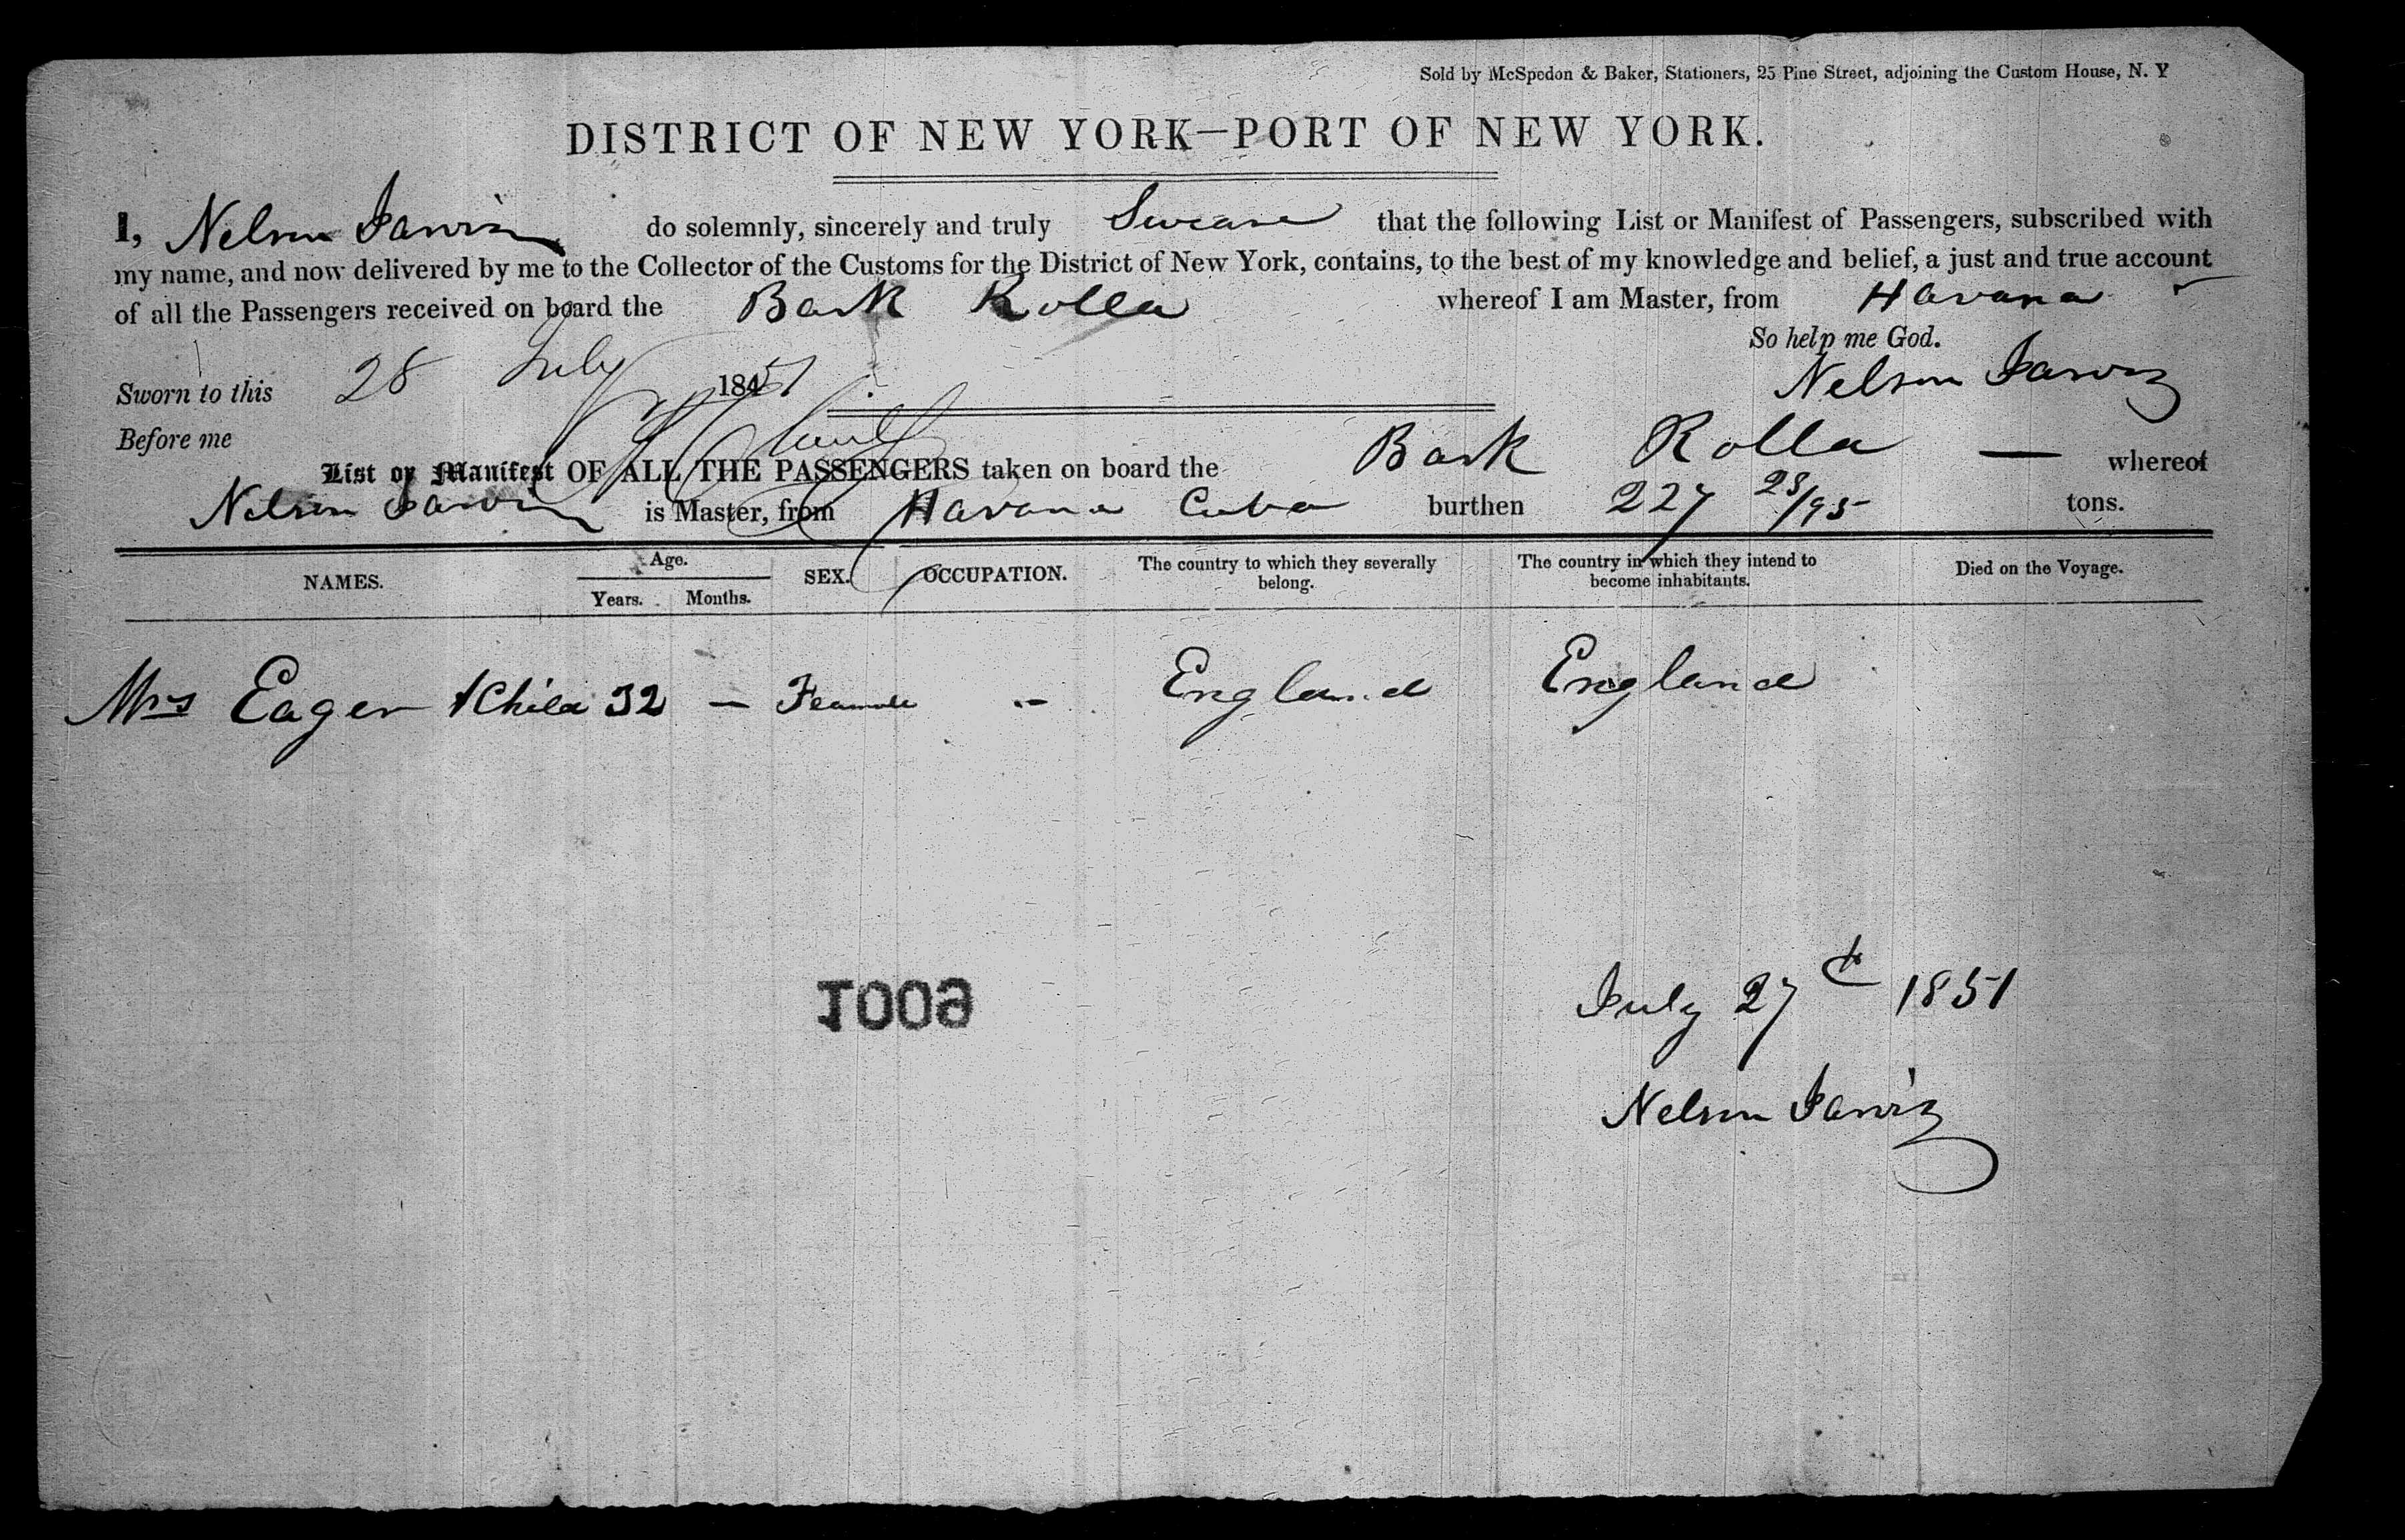 Sold by McSpedon & Baker, Stationers, 25 Pine Street, adjoining the Custom House, N. Y
DISTRICT OF NEW YORK—PORT OF NEW YORK.
I, Nelson Jarvis do solemnly, sincerely and truly Swear that the following List or Manifest of Passengers, subscribed with
my name, and now delivered by me to the Collector of the Customs for the District of New York, contains, to the best of my knowledge and belief, a just and true account
of all the Passengers received on board the Bark Rolla whereof I am Master, from Havana
So help me God.
Sworn to this 28 July 1851 Nelson Jarvis
Before me
List or Manifest OF ALL THE PASSENGERS taken on board the Bark Rolla — whereof
Nelson Jarvis is Master, from Havana Cuba burthen 227 28/95 tons.
NAMES. Age. Years. Months. SEX. OCCUPATION. The country to which they severally belong. The country in which they intend to become inhabitants. Died on the Voyage.
Mrs Eager & Child 32 — Feamale -- England England
1009
July 27th 1851
Nelson Jarvis